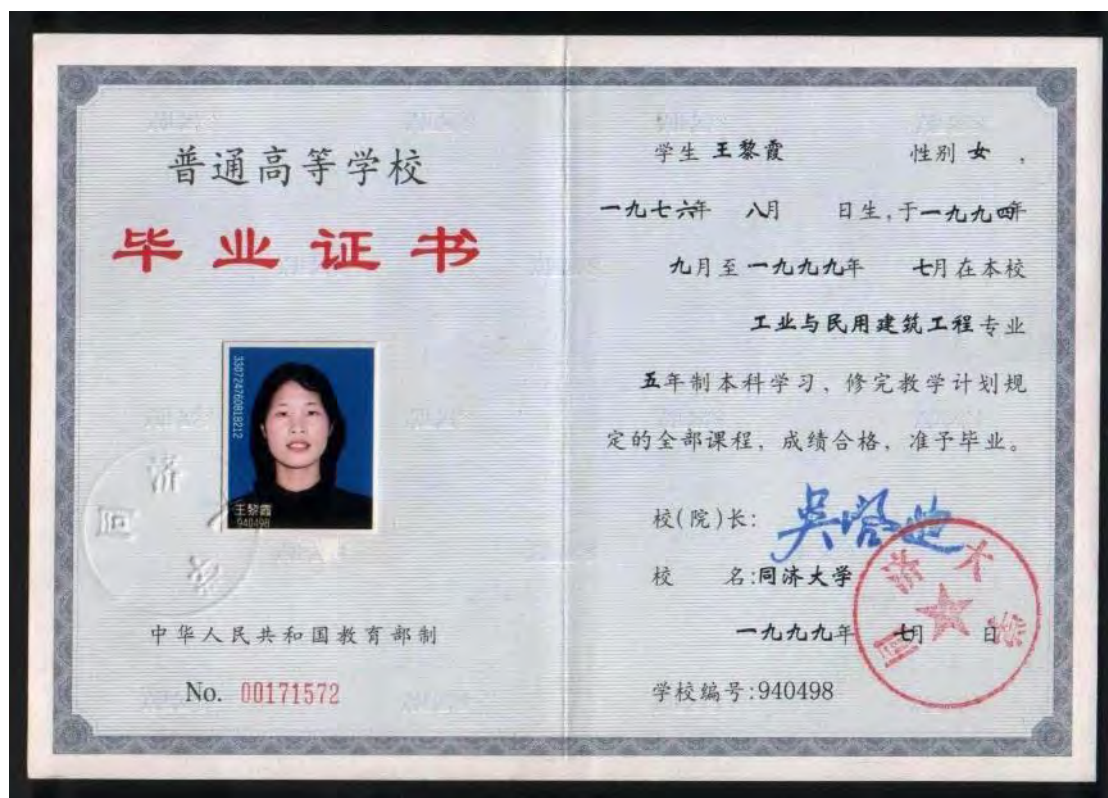 普通高等学校
毕业证书
330724760818212
王黎霞
940498
同济大学
中华人民共和国教育部制
No. 00171572
学生 王黎霞 性别 女 ,
一九七六年 八月 日生,于一九九四年
九月至一九九九年 七月在本校
工业与民用建筑工程专业
五年制本科学习、修完教学计划规
定的全部课程,成绩合格,准予毕业。
校(院)长:
校 名:同济大学
一九九九年 七月 日
同济大学
学校编号:940498